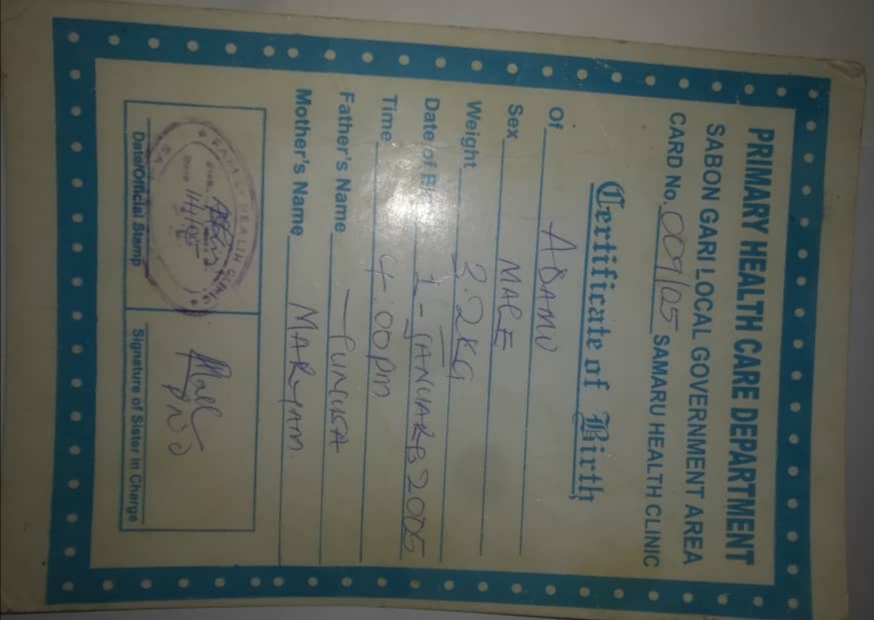 PRIMARY HEALTH CARE DEPARTMENT
SABON GARI LOCAL GOVERNMENT AREA
CARD No. 009/05 SAMARU HEALTH CLINIC
Certificate of Birth
Of ADAMU
Sex MALE
Weight 3.2KG
Date of Bi 1-JANUARY 2005
Time 4:00pm
Father's Name
Mother's Name MARYAM
Date/Official Stamp
Signature of Sister in Charge